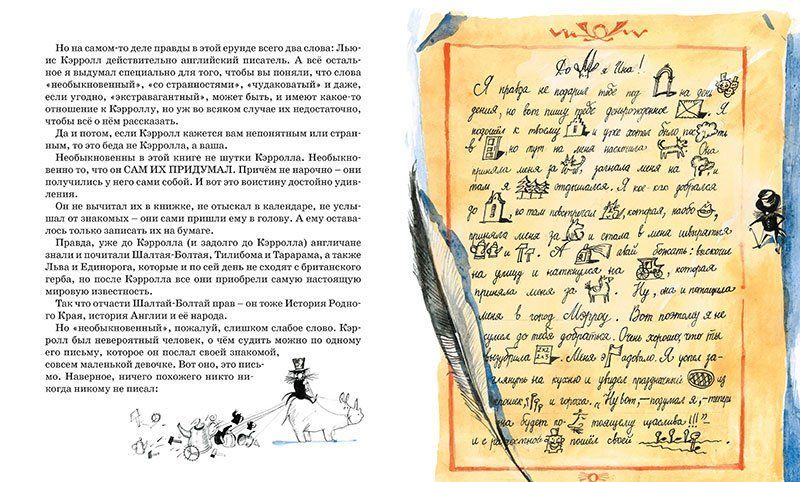 Но на самом-то деле правды в этой ерунде всего два слова: Лью-
ис Кэрролл действительно английский писатель. А всё осталь-
ное я выдумал специально для того, чтобы вы поняли, что слова
«необыкновенный», «со странностями», «чудаковатый» и даже,
если угодно, «экстравагантный», может быть, и имеют какое-то
отношение к Кэрроллу, но уж во всяком случае их недостаточно,
чтобы всё о нём рассказать.
Да и потом, если Кэрролл кажется вам непонятным или стран-
ным, то это беда не Кэрролла, а ваша.
Необыкновенны в этой книге не шутки Кэрролла. Необыкно-
венно то, что он САМ ИХ ПРИДУМАЛ. Причём не нарочно – они
получились у него сами собой. И вот это воистину достойно удив-
ления.
Он не вычитал их в книжке, не отыскал в календаре, не услы-
шал от знакомых – они сами пришли ему в голову. А ему остава-
лось только записать их на бумаге.
Правда, уже до Кэрролла (и задолго до Кэрролла) англичане
знали и почитали Шалтая-Болтая, Тилибома и Тарарама, а также
Льва и Единорога, которые и по сей день не сходят с британского
герба, но после Кэрролла все они приобрели самую настоящую
мировую известность.
Так что отчасти Шалтай-Болтай прав – он тоже История Родно-
го Края, история Англии и её народа.
Но «необыкновенный», пожалуй, слишком слабое слово. Кэр-
ролл был невероятный человек, о чём судить можно по одному
его письму, которое он послал своей знакомой,
совсем маленькой девочке. Вот оно, это пись-
мо. Наверное, ничего похожего никто ни-
когда никому не писал:
До я Ина!
Я правда не подарил тебе под на день
дения, но вот пишу тебе деньрожденное Я
подошёл к твоему и уже хотел было пос ть
в но тут на меня наскочила Она
приняла меня за загнала меня на и
там я отдышался. Я кое-как добрался
до но там повстречал которая, наобо
приняла меня за и стала в меня швыряться
и А авай бежать: выскочил
на улицу и наткнулся на , которая
приняла меня за Ну, она и потащила
меня в город Мэрроу. Вот поэтому я не
сумел до тебя добраться. Очень хорошо, что ты
вызубрила 2x2 2+3 Меня э адовало. Я успел за-
глянуть на кухню и увидел праздничный из
крошек, и гороха. „Ну вот,– подумал я, – теперь
она будет по- тоящему щаслива!!!"–
и с радостное пошёл своей